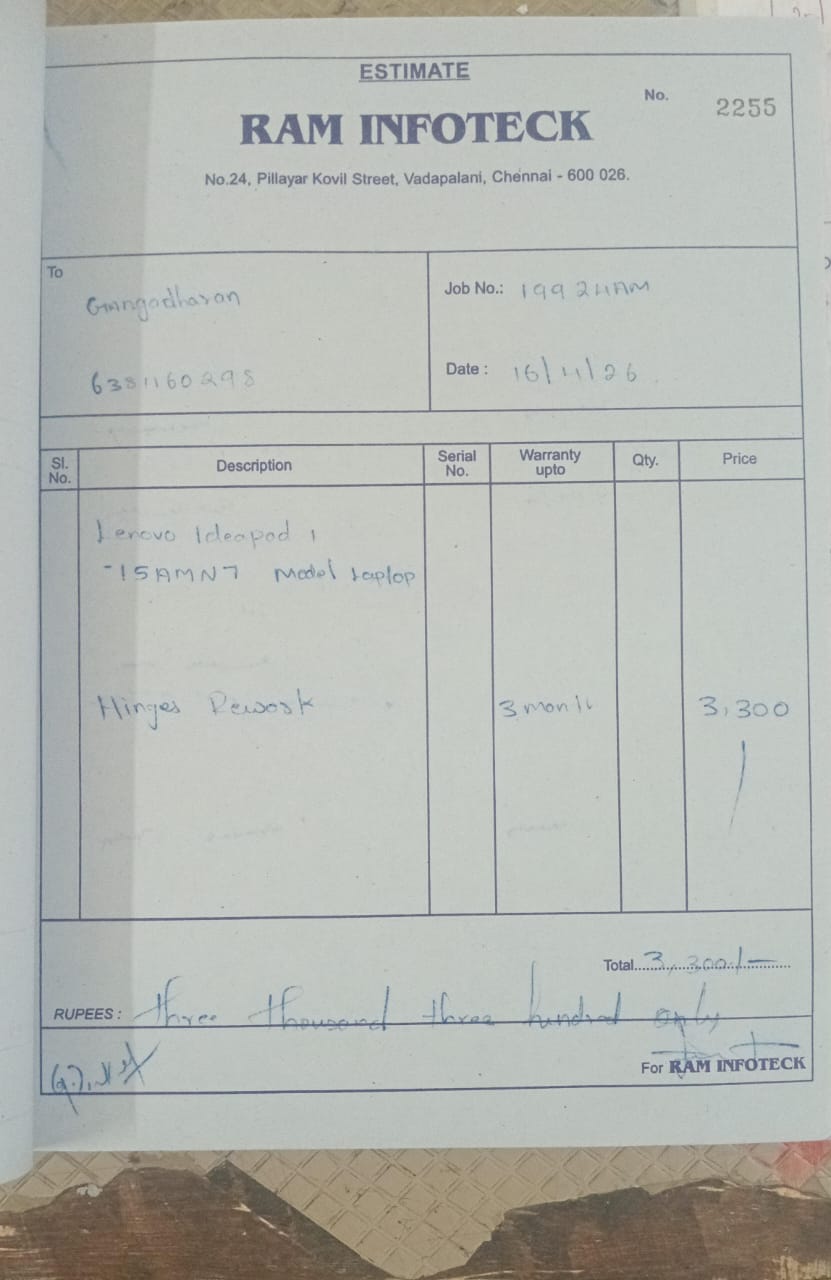 ESTIMATE
No. 2255
RAM INFOTECK
No.24, Pillayar Kovil Street, Vadapalani, Chennai - 600 026.
To
Gangadharan
6381160298
Job No.: 19924AM
Date : 16/11/26
Sl. No. Description Serial No. Warranty upto Qty. Price
Lenovo Ideapad 1
-15AMN7 Model Laptop
Hinges Rework 3 month 3,300
Total 3,300/-
RUPEES : three thousand three hundred only
For RAM INFOTECK